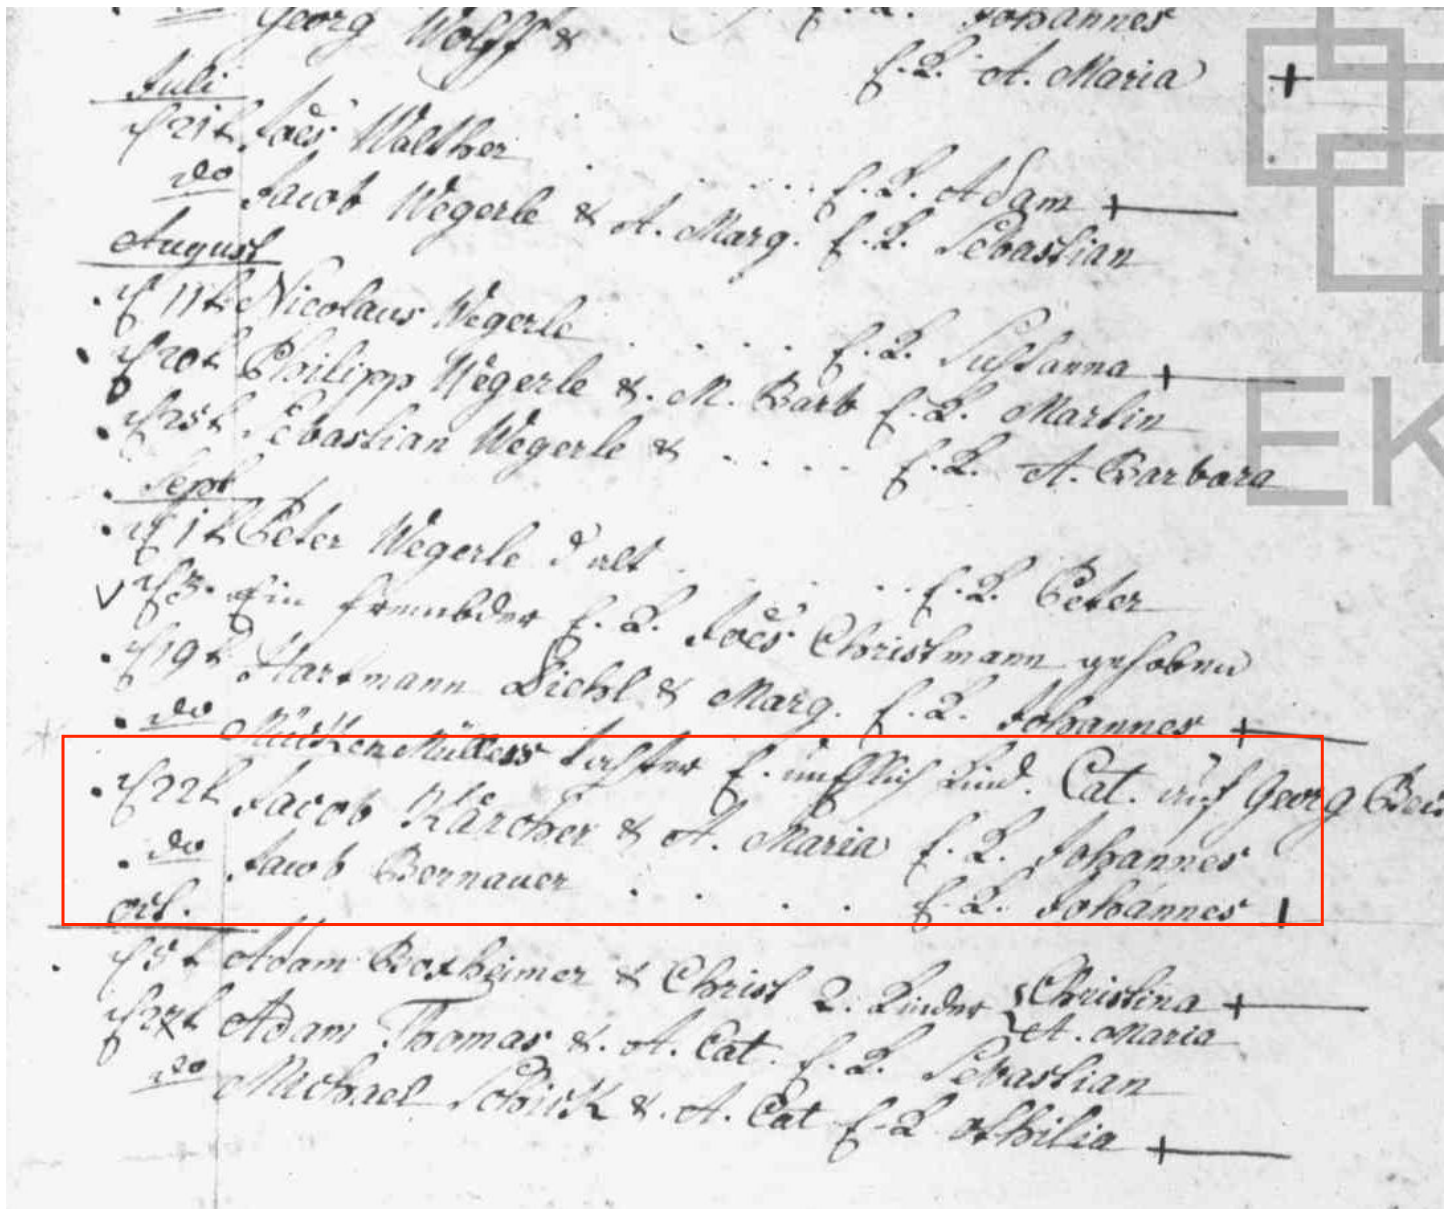 Georg Wolff & E. K. Johannes
E. K. A. Maria +
Juli
d 21t Joës Walther . . . . . E. K. Adam +
do Jacob Wegerle & A. Marg. E. K. Sebastian
August
d 11t Nicolaus Wegerle . . . . E. K. Sussanna +
d 20t Philipp Wegerle &. M. Barb E. K. Martin
d 25t Sebastian Wegerle & . . . . E. K. A. Barbara
Sept
d 1t Peter Wegerle d alt . . . . E. K. Peter
d 3. Ein frembder E. K. Joës Christmann gehoben
d 19t Hartmann Diehl & Marg. E. K. Johannes +
do Mücken Müllers tochter E. unehlich Kind. Cat. auf Georg
d 22t Jacob Kärcher & A. Maria E. K. Johannes
do Jacob Bernauer . . . . E. K. Johannes
oct.
d 5t Adam Boxheimer & Christ 2. Kinder { Christina +
A. Maria
Adam Thomas &. A. Cat. E. K. Sebastian
do Michael Schick &. A. Cat E. K. othilia +
EK